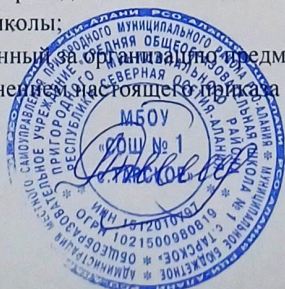 иколы;
нный за организацию предм
нением настоящего приказа
РСО-АЛАНИ
АДМИНИСТРАЦИЯ МЕСТНОГО САМОУПРАВЛЕНИЯ ПРИГОРОДНОГО МУНИЦИПАЛЬНОГО РАЙОНА РСО-АЛАНИЯ
МУНИЦИПАЛЬНОЕ БЮДЖЕТНОЕ ОБЩЕОБРАЗОВАТЕЛЬНОЕ УЧРЕЖДЕНИЕ «СРЕДНЯЯ ОБЩЕОБРАЗОВАТЕЛЬНАЯ ШКОЛА № 1 С.ТАРСКОЕ»
ПРИГОРОДНОГО
РАЙОНА
РЕСПУБЛИКИ СЕВЕРНАЯ ОСЕТИЯ-АЛАНИЯ
МБОУ
«СОШ № 1
с. ТАРСКОЕ»
ИНН 1512010797
ОГРН 1021500980819